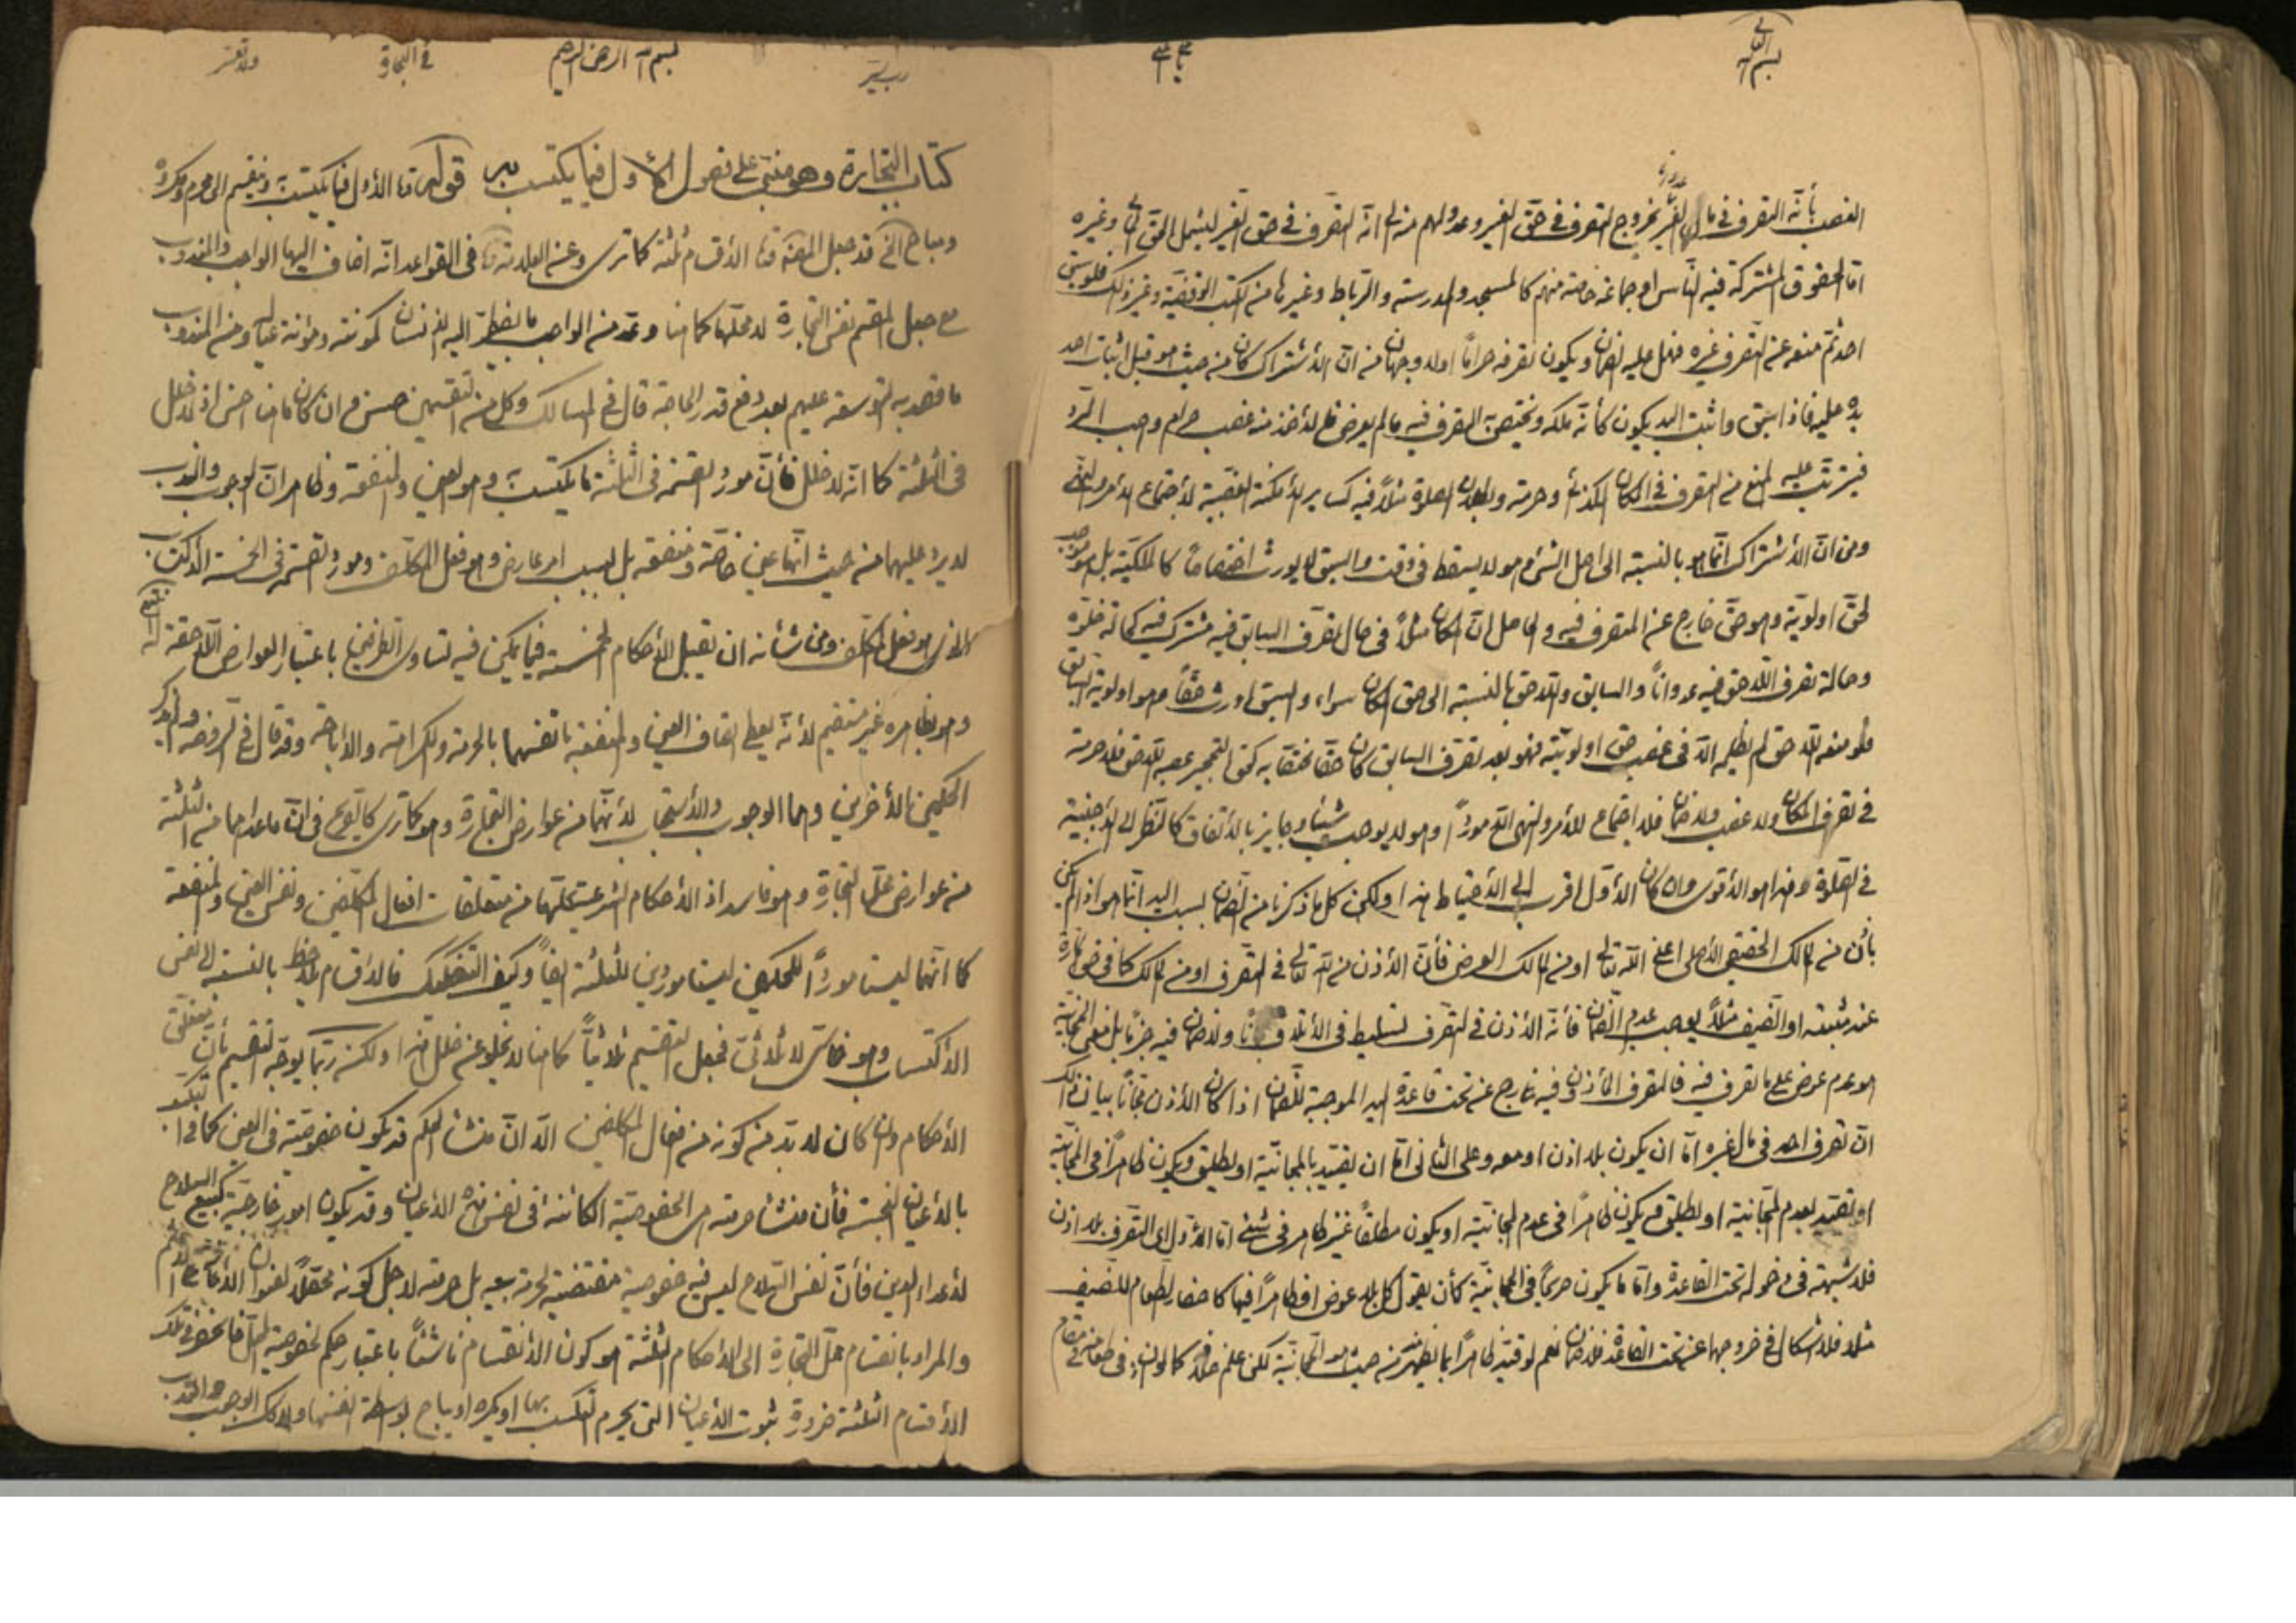 بسم الله تعالى
الغصب بأنّه التصرف في مال الغير بخروج التصرف في حق الغير وعدولهم منه الى انّه التصرف في حق الغير ليشمل الحق المالى وغيره
امّا الحقوق المشتركة فيه النّاس او جماعة خاصة منهم كالمسجد والمدرسة والرباط وغيرها من الكتب الوقفيّة وغير ذلك فلو سبق
احد ثم منعه عن التصرف غيره فهل عليه الضمان ويكون تصرفه حراماً اولا وجهان من انّ الأشتراك كان من حيث هو قبل اثبات احد
يده عليه فاذا سبق واثبت اليد يكون كأنّه ملكه ويختص به التصرف فيه مالم يعرض فالأخذ منه غصب حرام وجب الرد
فيترتب عليه المنع من التصرف في المكان المذكور وحرمته وبطلان الصلوة مثلاً فيه كساير الأمكنة الغصبية لأجتماع الأمر والنهى
ومن انّ الأشتراك انّما هو بالنسبة الى اصل الشئ وهو لا يسقط في وقت والسبق لا يورث اختصاصاً كالملكيّة بل هو موجب
لحق اولويّة وهو حق خارج عن المتصرف فيه والحاصل انّ المكان مثلاً في حال تصرف السابق فيه مشترك فيه كحالة خلوّه
وحالة تصرف اللاحق فيه عدواناً والسابق واللاحق بالنسبة الى حق المكان سواء والسبق اورث حقّاً وهو اولويّة السابق
فلو منعه اللاحق لم يظلمه الّا في غصب حق اولويّته فهو بعد تصرف السابق كان حقا مختصا به كحق التحجير غصبه اللاحق فلا حرمة
في تصرف المكان ولا غصب ولا ضمان فلا اجتماع للأمر والنهى الّا مورداً وهو لا يوجب شيئا وجايز بالأتفاق كالنظر الى الأجنبية
في الصلوة وهذا هو الأقوى وان كان الأول اقرب الى الأحتياط هذا ولكن كل ما ذكرنا من الضمان بسبب اليد انّما هو اذا لم يكن
بأذن من المالك الحقيقى الأصلى اعنى الله تعالى او من المالك العرضى فأنّ الأذن من الله تعالى في التصرف او من المالك كما في
عند او الضيف مثلاً يوجب عدم الضمان فأنّ الأذن في التصرف تسليط في الأتلاف مجّاناً ولا ضمان فيه جزماً بل معنى المجانية
هو عدم عوض على ما تصرف فيه فالتصرف المأذون فيه خارج عن تحت قاعدة اليد الموجبة للضمان اذا كان الأذن مجّاناً بيان ذلك
انّ تصرف احد في مال غيره امّا ان يكون بلا اذن او معه وعلى الثانى امّا ان يقيّد بالمجانيّة او يطلق ويكون ظاهراً في المجانيّة
او يقيّد بعدم المجانية او يطلق ويكون ظاهراً في عدم المجانية او يكون مطلقاً غير ظاهر في شئ امّا الأول اى التصرف بلا اذن
فلا شبهة في دخوله تحت القاعدة وامّا ما يكون صريحاً في المجانيّة كأن يقول كل بلا عوض او ظاهراً فيها كاحضار الطعام للضيف
مثلا فلا اشكال في خروجهما عن تحت القاعدة فلا ضمان نعم لو قيّد ظاهراً بما يظهر منه من حيث هو المجّانيّة لكن علم ضدّه كما لو اذن في
بسم الله الرحمن الرحيم
رب يسّر
في التجارة
ولا تعسر
كتاب التجارة وهو مبنى على فصول الأول فيما يكتسب به قوله امّا الأول فيما يكتسب به وينقسم الى محرم ومكروه
ومباح الخ قد جعل المصنّف هنا الأقسام ثلثة كما ترى وعن العلامة في القواعد انّه اضاف اليها الواجب والمندوب
مع جعل المقسم نفس التجارة لا محلّها كما هنا وعدّ من الواجب ما يضطر اليه الأنسان لمونته ومؤنة عياله ومن المندوب
ما قصد به التوسعة عليهم بعد دفع قدر الحاجة قال في المسالك وكل من التقسيمين حسن وان كان ما هنا احسن اذ لا خلل
في الثلثة كما انّه لا خلل فأنّ مورد القسمة في الثلثة ما يكتسب به وهو العين والمنفعة وظاهر انّ الوجوب والندب
لا يرد عليهما من حيث انّها عين خاصّة ومنفعة بل بسبب امر عارض وهو فعل المكلّف ومورد القسمة في الخمسة الأكتساب
الذى هو فعل المكلّف ومن شأنه ان تقبل الأحكام الخمسة فيما يمكن فيه تساوى الطرفين باعتبار العوارض اللاحقة له
وهو بظاهره غير مستقيم لأنّه يعطى اتصاف العين والمنفعة بأنفسهما بالحرمة والكراهة والأباحة وقد قال في الروضة ولم يذكر
الحكمين الأخرين وهما الوجوب والأستحباب لأنّهما من عوارض التجارة وهو كما ترى كالصريح في انّ ما عداهما من الثلثة
من عوارض محلّ التجارة وهو فاسد اذ الأحكام الشرعية كلّها من متعلقات افعال المكلّفين ونفس العين والمنفعة
كما انّهما ليستا مورداً للحكمين ليستا موردين للثلثة ايضاً وكيف التفكيك فالأقسام يلاحظ بالنسبة الى نفس
الأكتساب وهو خماسى لا ثلاثىّ فجعل التقسيم ثلاثيّاً كما هنا لا يخلو عن خلل هذا ولكن ربّما يوجّه التقسيم بأن متعلق
الأحكام وان كان لا بد من كونه من افعال المكلفين الّا انّ منشأ الحكم قد يكون خصوصيّة في العين كما في التكسب
بالأعيان النجسة فأن منشأ حرمته هى الخصوصيّة الكائنة في نفس هذه الأعيان وقد يكون امور خارجيّة كبيع السلاح
لأعداء الدين فأنّ نفس السّلاح ليس فيه خصوصية مقتضية لحرمة بيعه بل حرمته لاجل كونه محصّلاً لعنوان الأعانة على الأثم
والمراد بانقسام محلّ التجارة الى الأحكام الثلثة هو كون الأنقسام ناشئاً باعتبار حكم لخصوصية المحل فانحصر في تلك
الأقسام الثلثة ضرورة ثبوت الأعيان التى يحرم التكسب بها او يكره او يباح بواسطة انفسها ولا كك الوجوب والندب